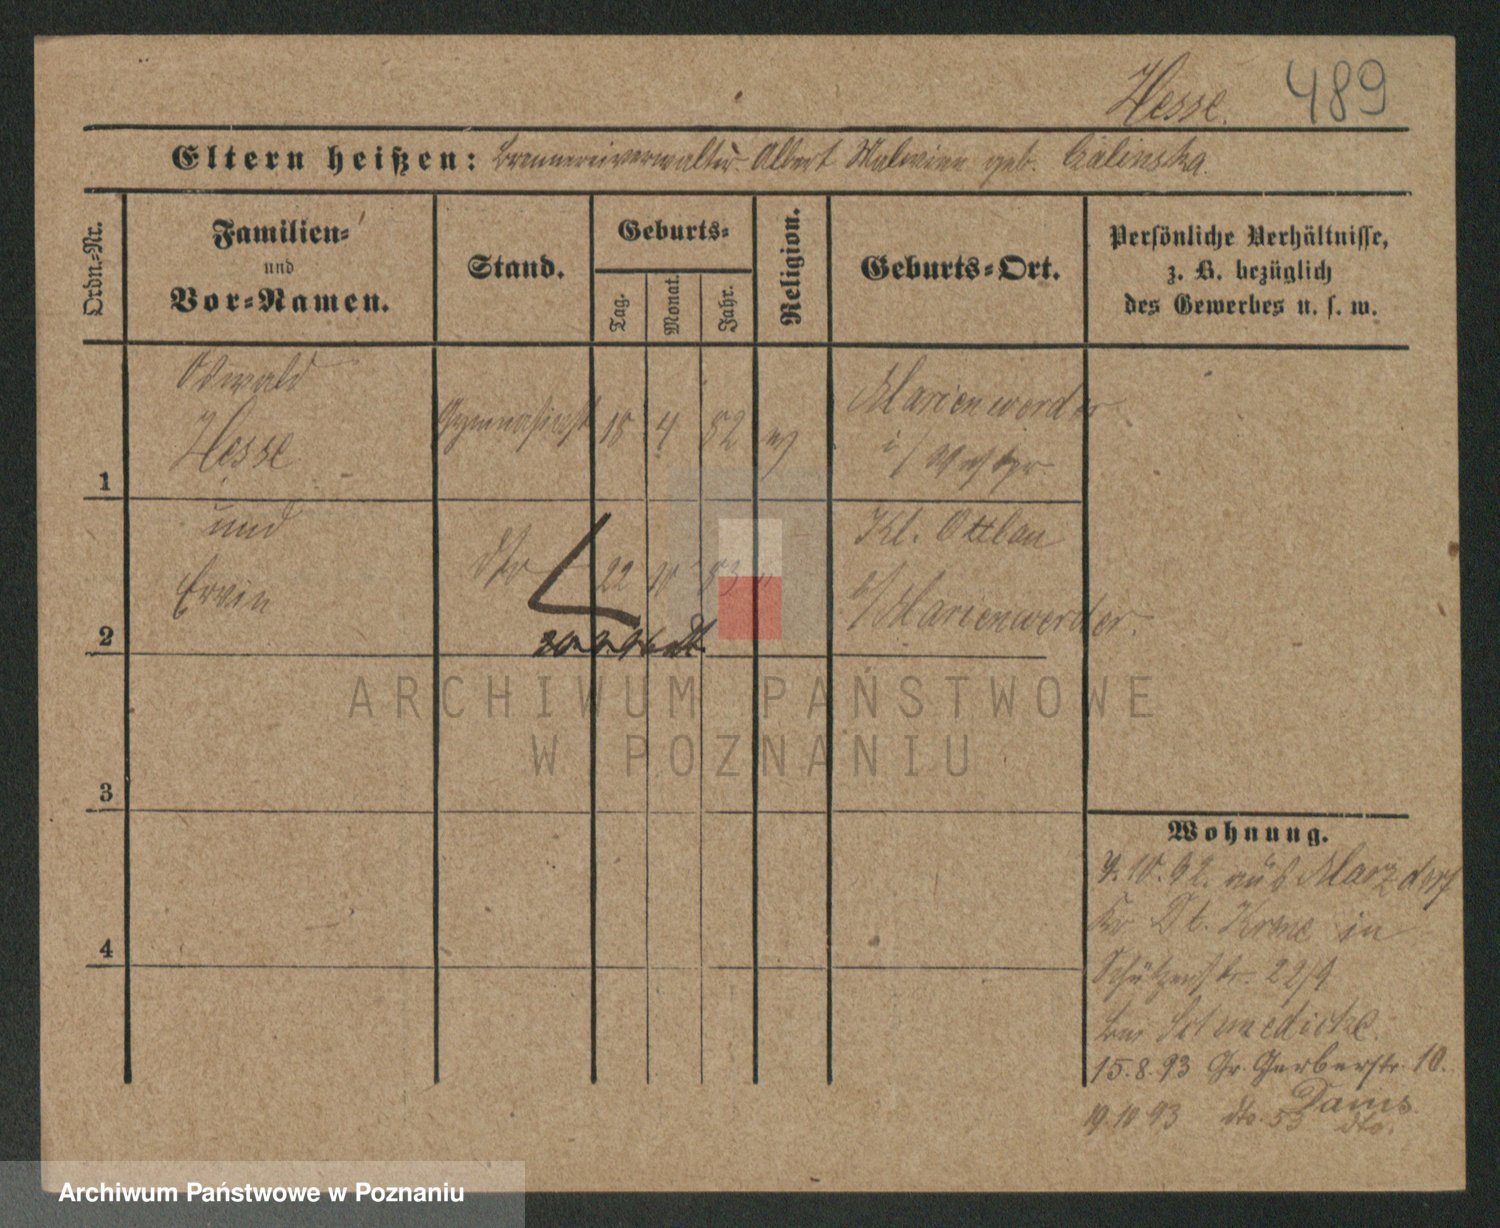 Hesse. 489
Eltern heißen: Brennereiverwalter Albert Malwine geb. Czalinska.
Ordn.-Nr.
Familien-
und
Vor-Namen.
Stand.
Geburts-
Tag.
Monat.
Jahr.
Religion.
Geburts-Ort.
Persönliche Verhältnisse,
z. B. bezüglich
des Gewerbes u. s. w.
1
Oswald
Hesse
Gymnasiast 18 4 82
Marienwerder
i/ Westpr.
2
und
Erwin
dto 22 10 83
Kl. Ottlau
b/ Marienwerder.
3
4
Wohnung.
7.10.92. aus Marzdorf
Kr Dt. Krone in
Schützenstr. 22/4
bei Schmedicke.
15.8.93 Gr. Gerberstr. 10.
Dams
19.10.93 dto. 53 dto.
ARCHIWUM PAŃSTWOWE
W POZNANIU
Archiwum Państwowe w Poznaniu